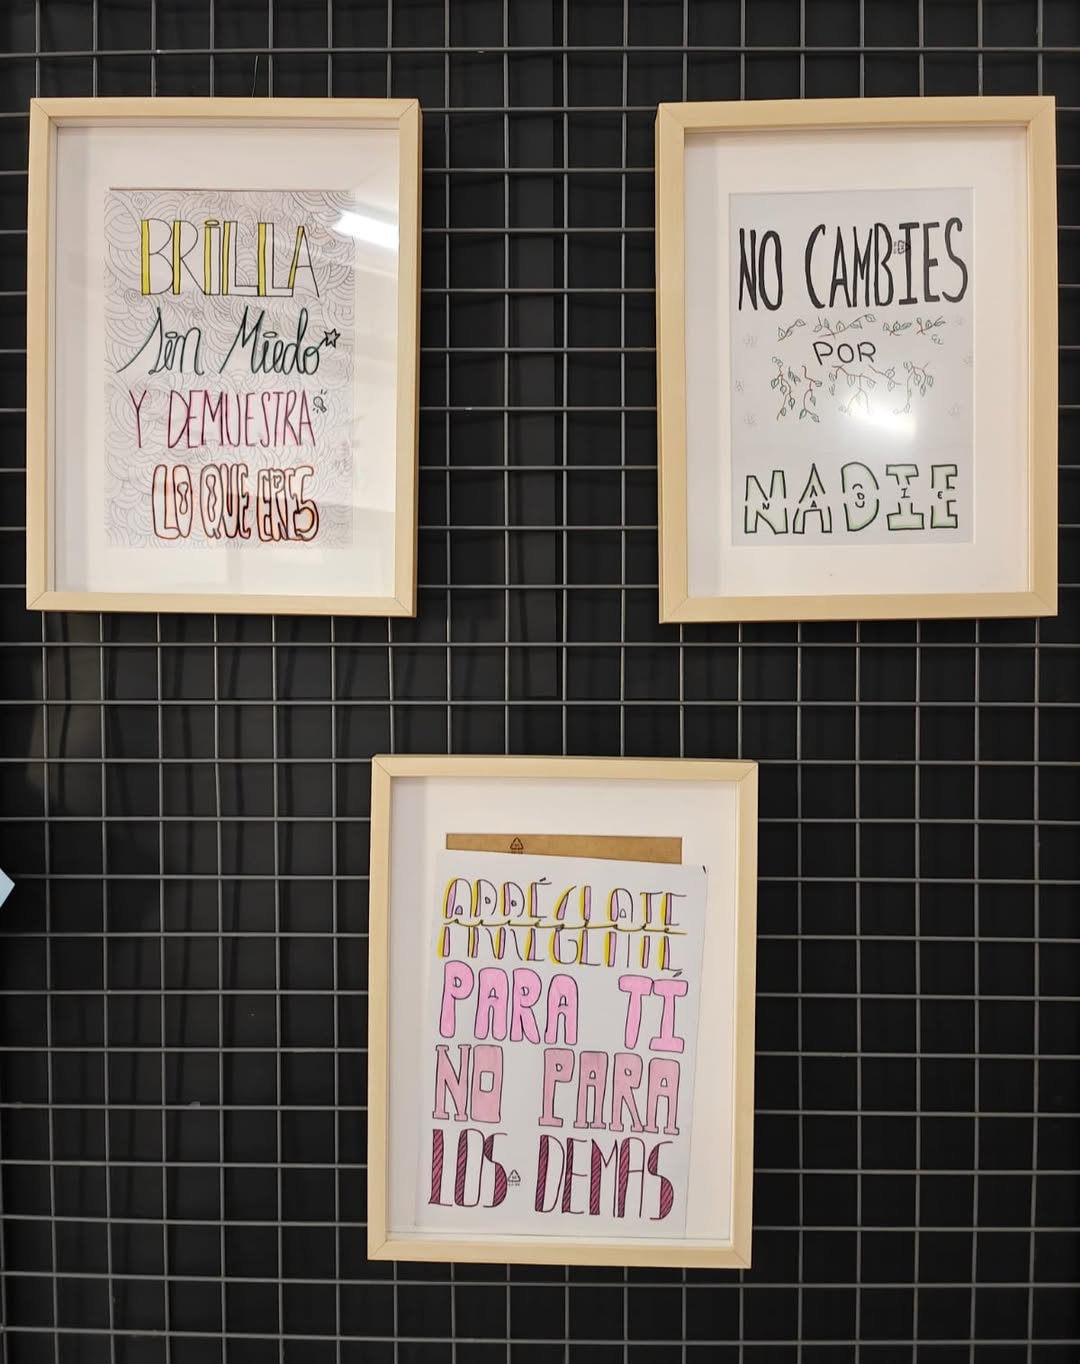 BRILLA
Sin Miedo
Y DEMUESTRA
LO QUE ERES
NO CAMBIES
POR
NADIE
ARRÉGLATE
PARA TÍ
NO PARA
LOS DEMAS